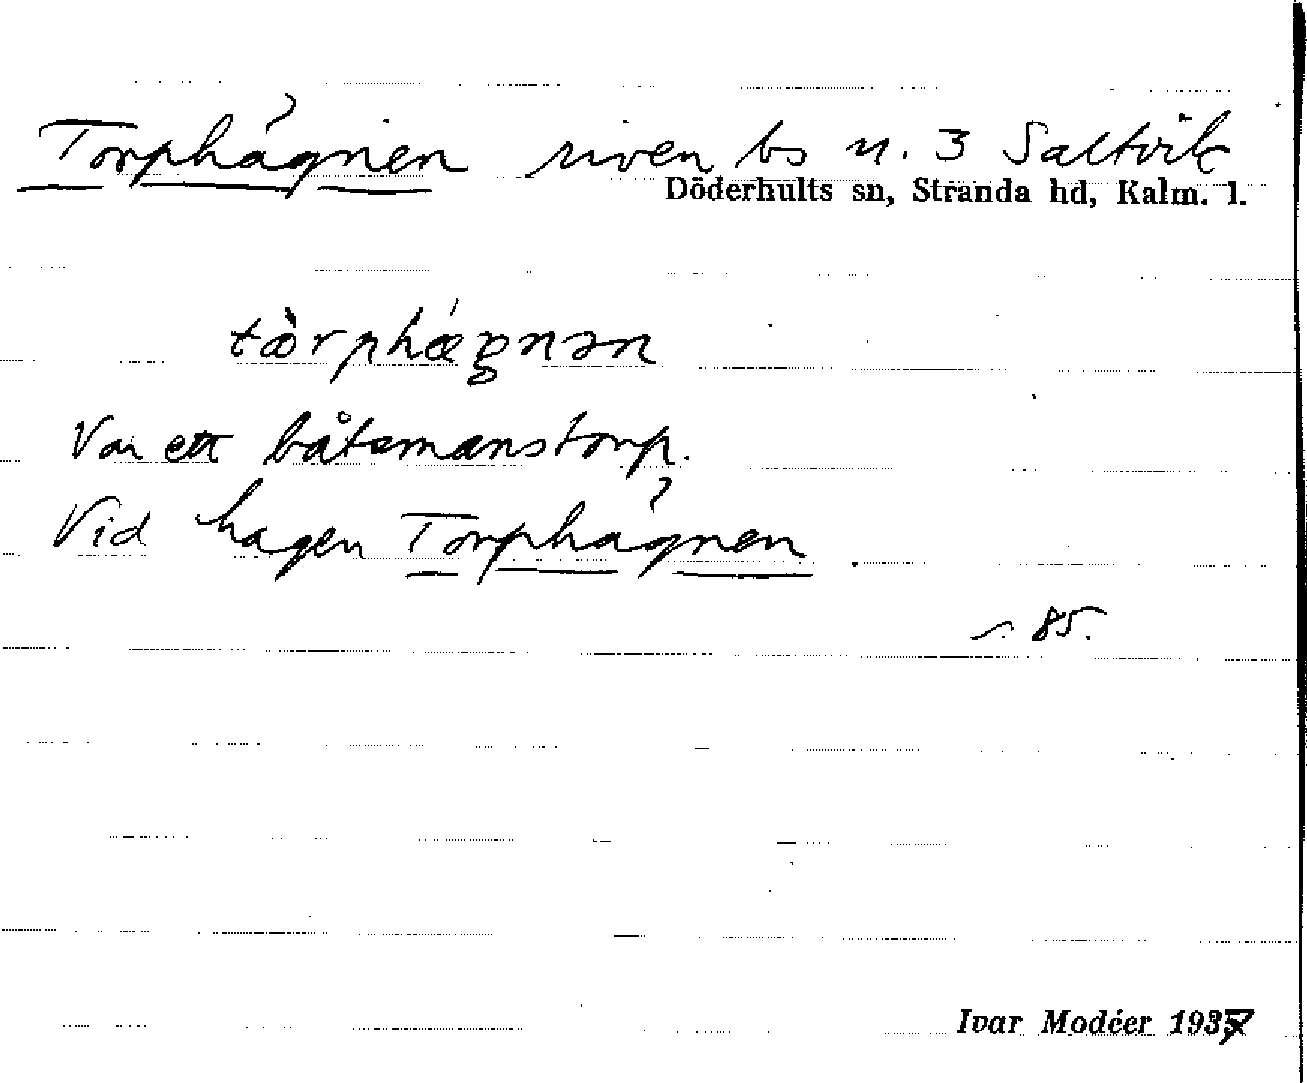 Torphágnen riven bs n. 3 Saltvik
Döderhults sn, Stranda hd, Kalm. l.
tòrphágnən
Var ett båtsmanstorp.
Vid hagen Torphágnen.
s. 85.
Ivar Modéer 1937